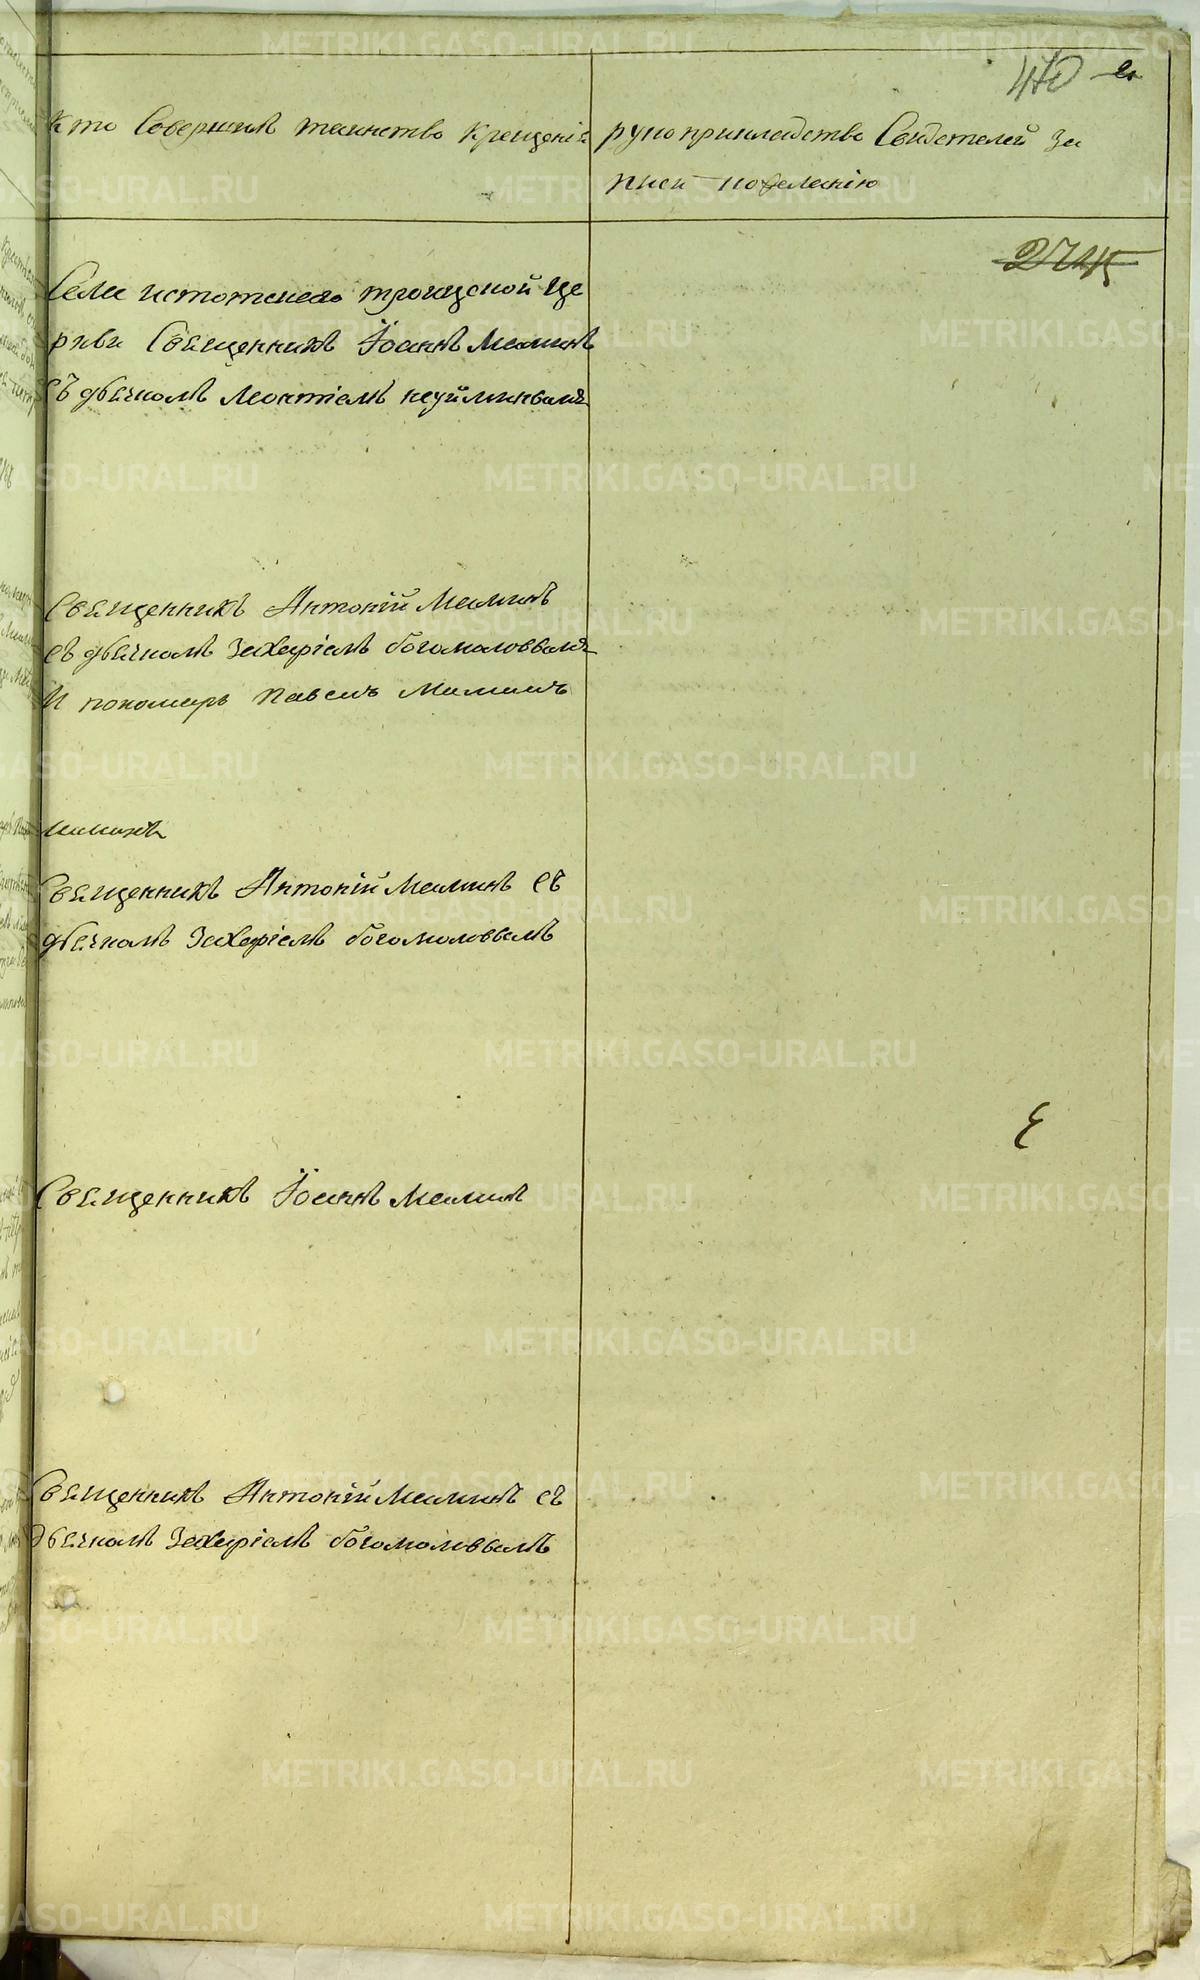 470
Кто Совершилъ таинство Крещенія
рукоприкладство Свидетелей за
писи по желанію
Села истотскаго троицкой це
ркви Священникъ Іоаннъ Маминъ
съ дьячкомъ Леонтіемъ неуйминымъ
Священникъ Антоній Маминъ
съ дьячкомъ Захаріемъ богомоловвымъ
И пономарь Павелъ Маминъ
Маминъ
Священникъ Антоній Маминъ съ
дьячкомъ Захаріемъ богомоловвымъ
Священникъ Іоаннъ Маминъ
Священникъ Антоній Маминъ съ
дьячкомъ Захаріемъ богомоловвымъ
METRIKI.GASO-URAL.RU